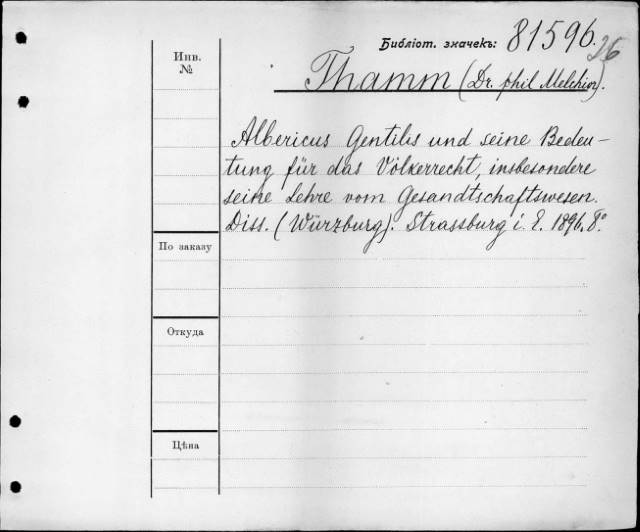 Библіот. значекъ: 81596.
26
Инв.
№
Thamm (Dr. phil Melchior).
Albericus Gentilis und seine Bedeu-
tung für das Völkerrecht, insbesondere
seine Lehre vom Gesandtschaftswesen.
Diss. (Würzburg). Strassburg i. E. 1896. 8°
По заказу
Откуда
Цѣна